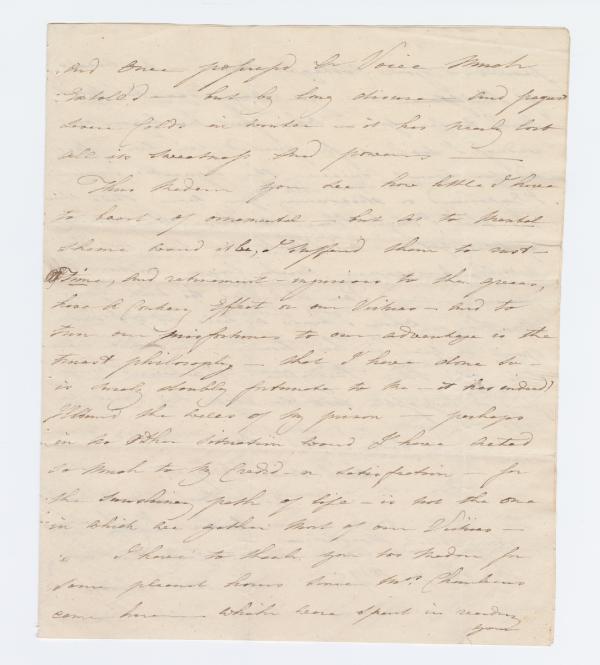 And Once possess'd a Voice Much
Extol'd – but by long disuse – And frequent
severe Colds in winter – it has nearly lost
all its Sweetness And powers –
Thus Madam you see how little I have
to boast – of ornamental – but as to Mental
shame would it be, I suffer'd them to rust –
Time, and retirement – injurious to the graces,
have a Contrary Effect on our Virtues – And to
turn our misfortunes to our advantage is the
truest philosophy – that I have done so –
is surely doubly fortunate to me – it has indeed
the of my prison – perhaps
in no Other situation would I have Acted
so Much to My Credit – or satisfaction – for
the Sunshiney path of life – is not the one
in which we gather Most of our Virtues –
I have to thank you too Madam for
some pleasant hours since Mrs. Chambers
came here – which were spent in reading
your